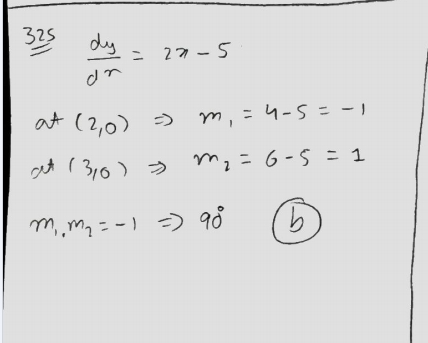 325
dy/dx = 2x - 5
at (2,0) ⇒ m₁ = 4-5 = -1
at (3,0) ⇒ m₂ = 6-5 = 1
m₁.m₂ = -1 ⇒ 90° (b)